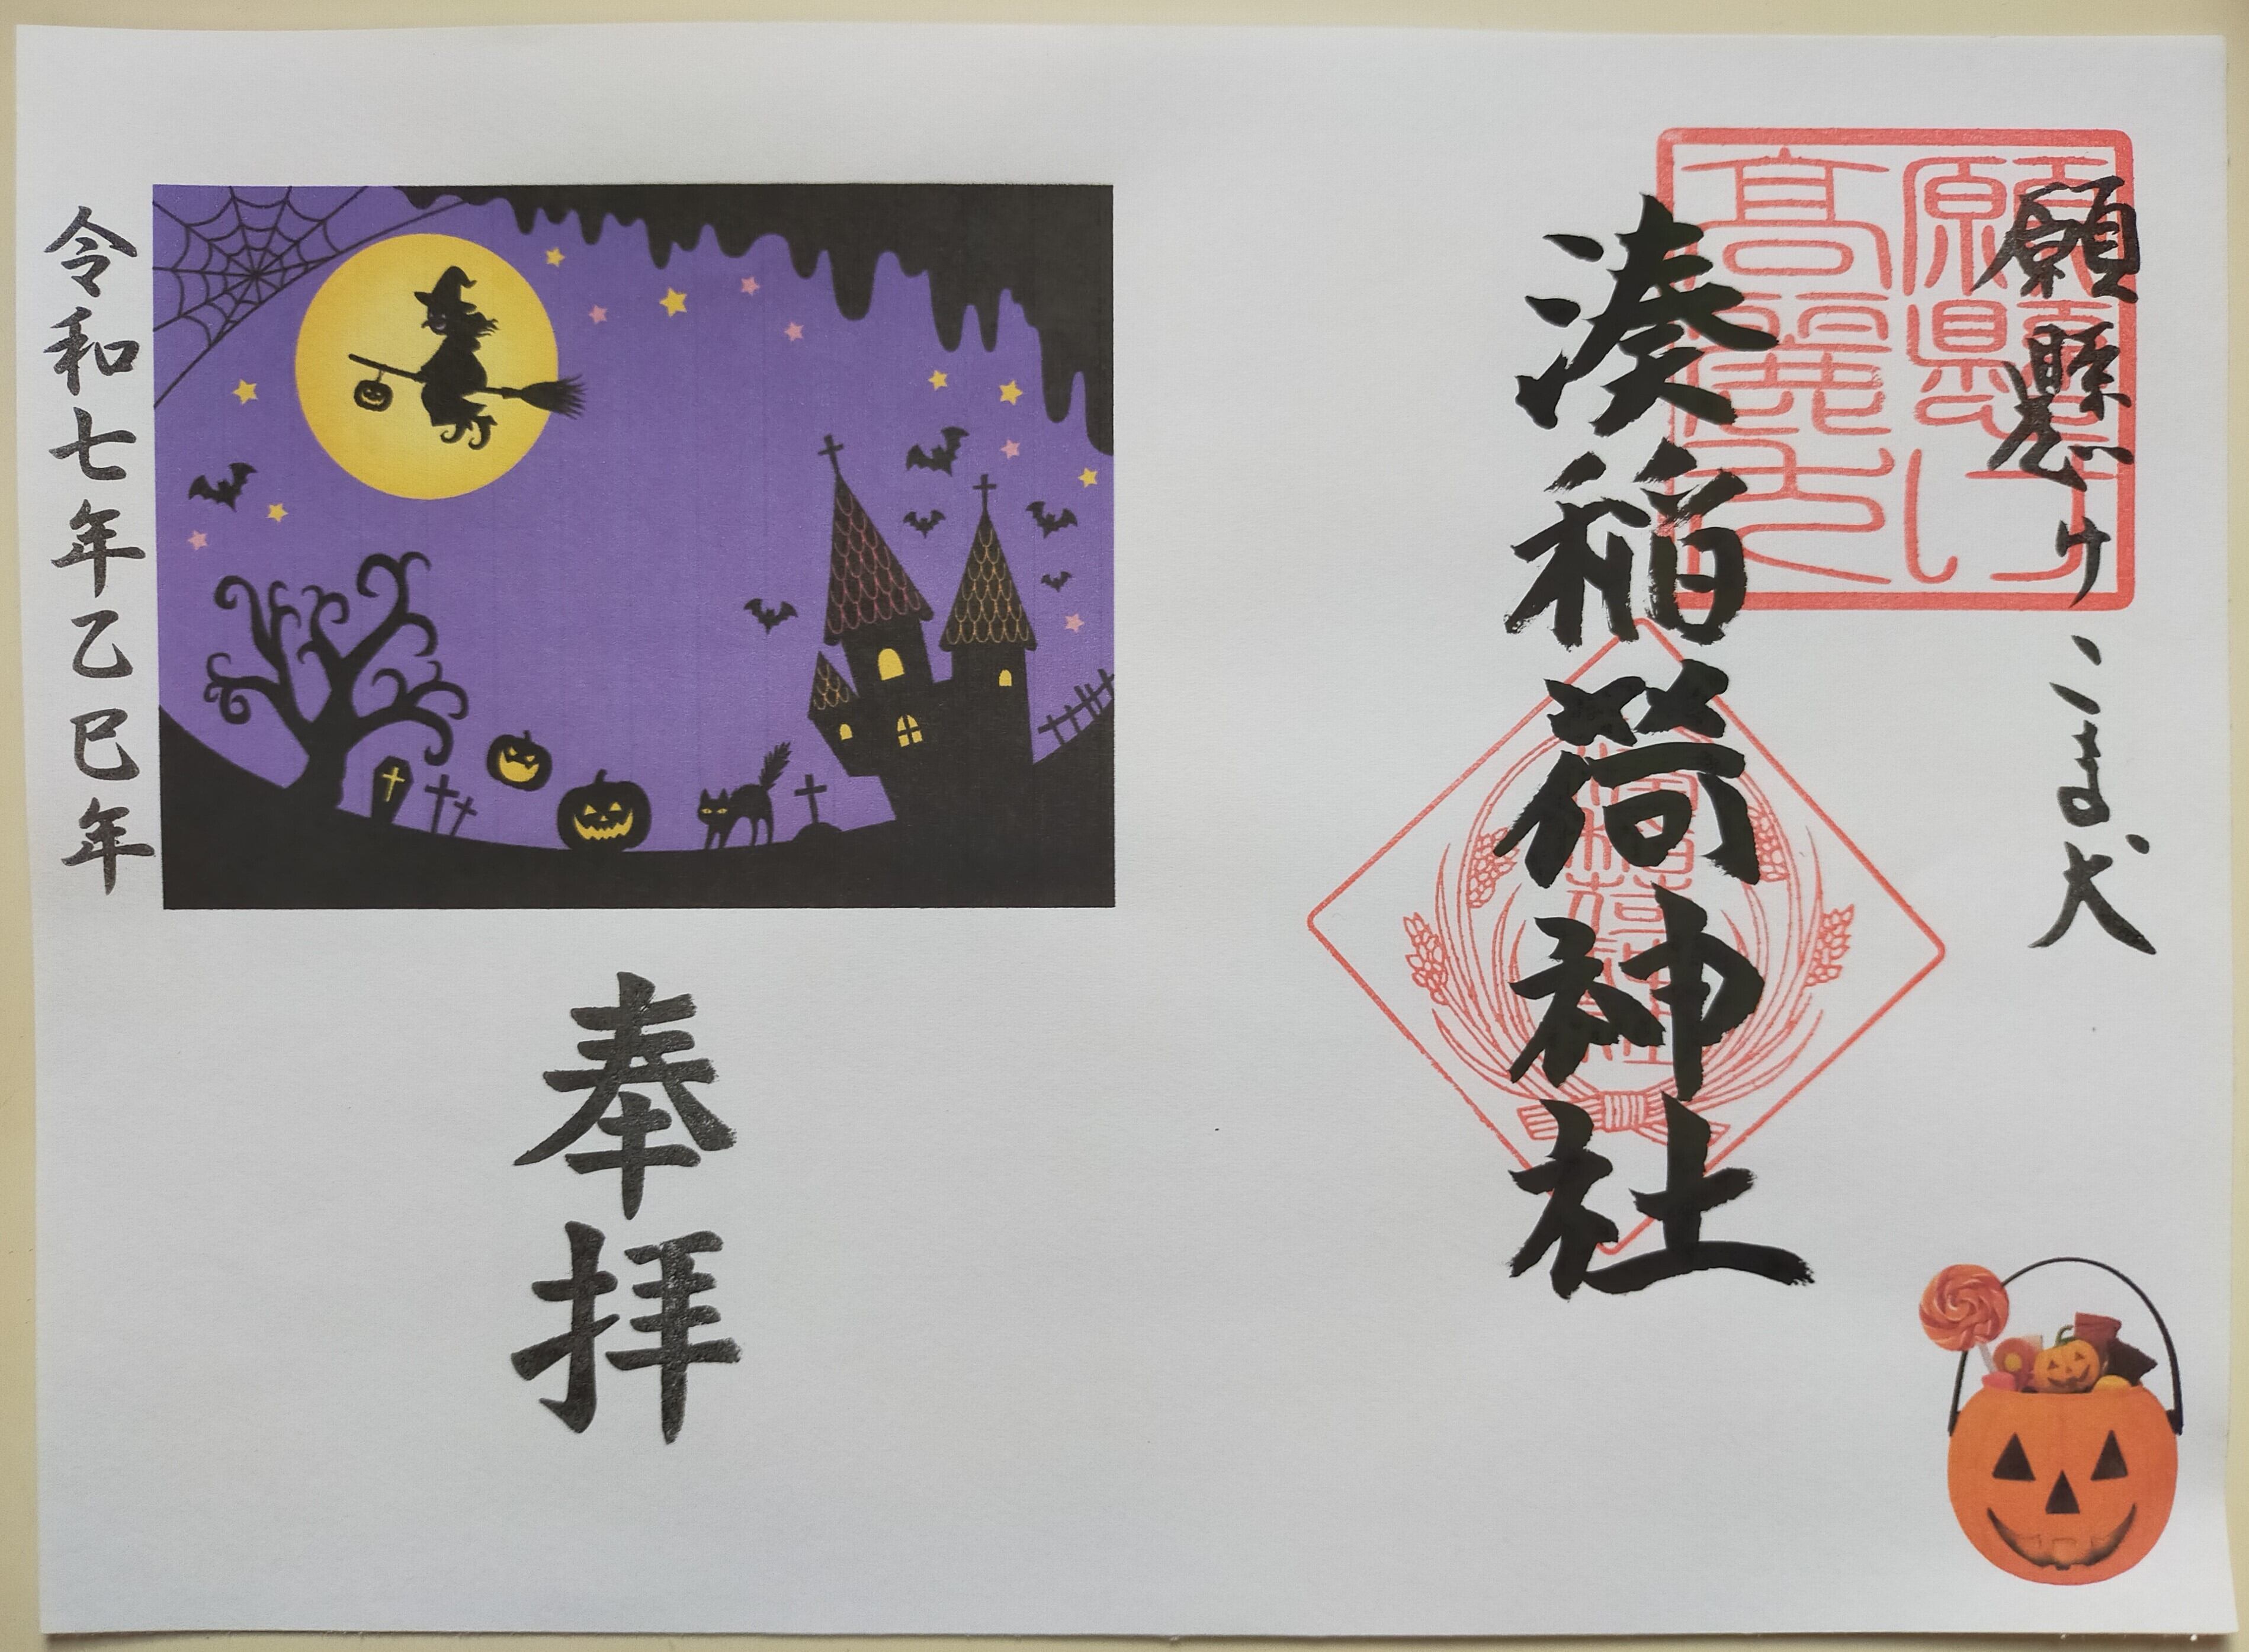 願懸けこま犬
願懸け高麗犬
湊稲荷神社
稲荷神社
奉拝
令和七年乙巳年